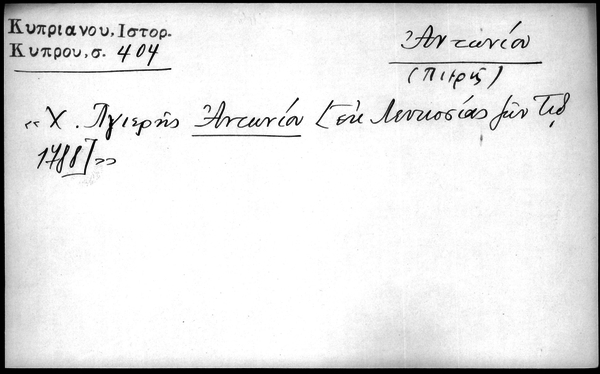 Κυπριανου, Ιστορ.
Κυπρου, σ. 404
Ἀντωνίου
(Πιερῆς)
«Χ. Πγιερῆς Ἀντωνίου [ἐκ Λευκοσίας ζῶν τῷ
1788]»